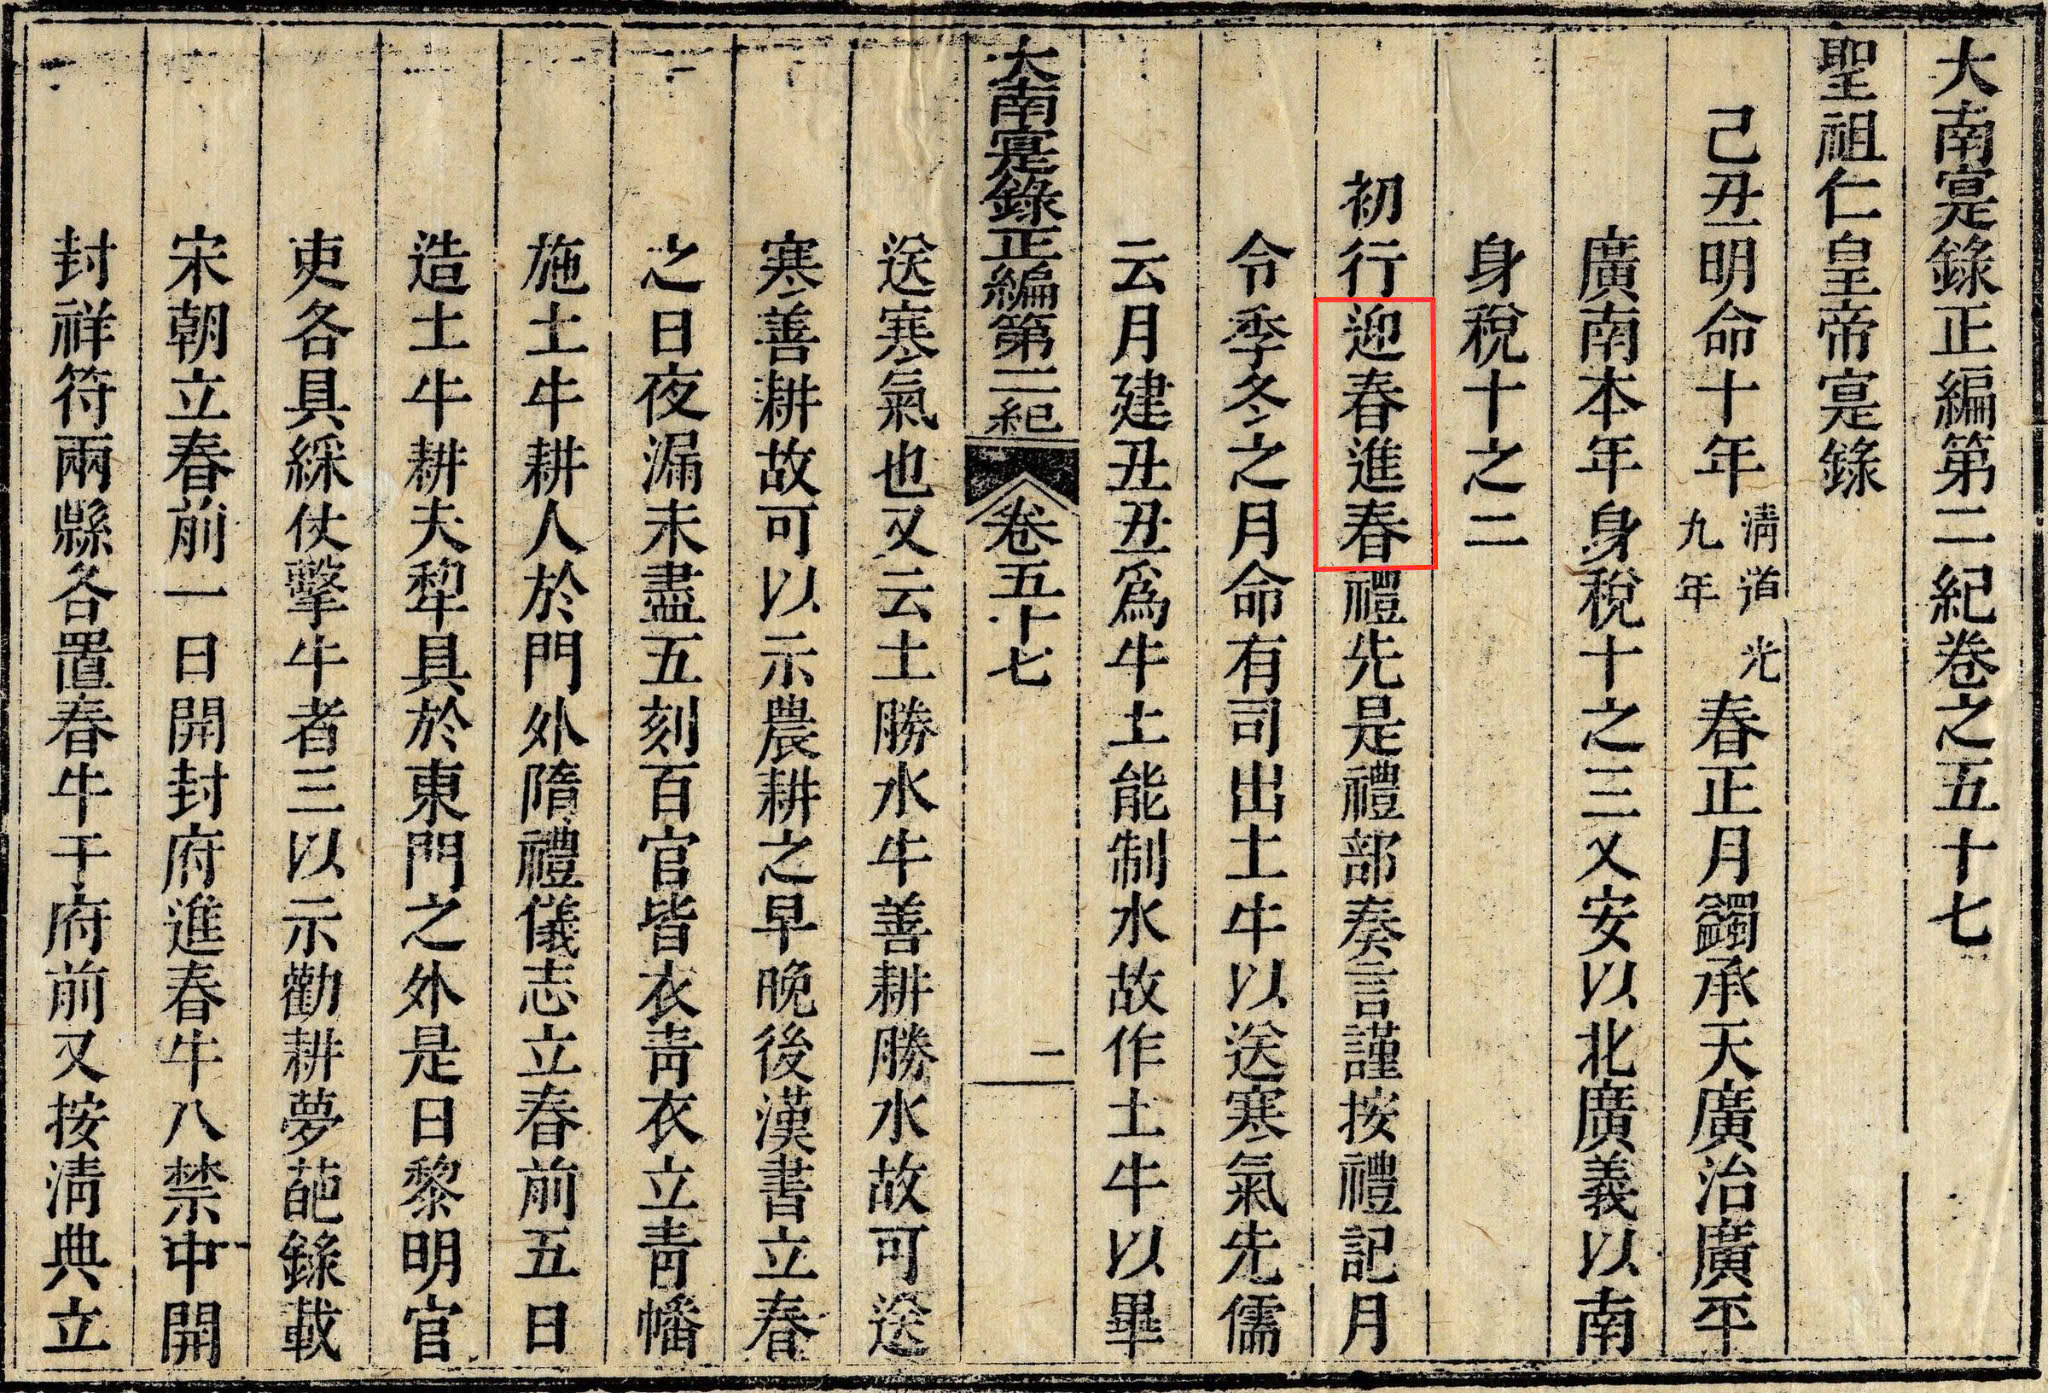 大南寔錄正編第二紀卷之五十七
聖祖仁皇帝寔錄
己丑明命十年清道光九年春正月蠲承天廣治廣平
廣南本年身稅十之三乂安以北廣義以南
身稅十之二
初行迎春進春禮先是禮部奏言謹按禮記月
令季冬之月命有司出土牛以送寒氣先儒
云月建丑丑爲牛土能制水故作土牛以畢
大南寔錄正編第二紀 卷五十七 一
送寒氣也又云土勝水牛善耕勝水故可送
寒善耕故可以示農耕之早晚後漢書立春
之日夜漏未盡五刻百官皆衣靑衣立靑幡
施土牛耕人於門外隋禮儀志立春前五日
造土牛耕夫犂具於東門之外是日黎明官
吏各具綵仗擊牛者三以示勸耕夢葩錄載
宋朝立春前一日開封府進春牛入禁中開
封祥符兩縣各置春牛于府前又按淸典立